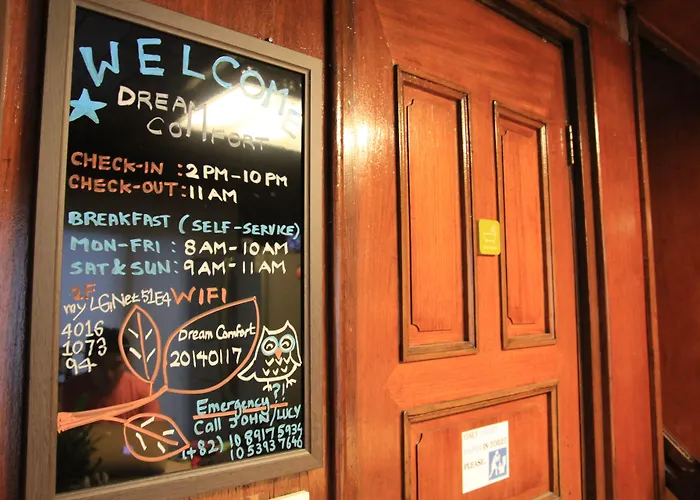 WELCOME
DREAM
COMFORT
CHECK-IN : 2 PM-10 PM
CHECK-OUT: 11 AM
BREAKFAST (SELF-SERVICE)
MON-FRI : 8 AM-10 AM
SAT & SUN : 9 AM-11 AM
2F WIFI
myLGNet51E4
4016
1073
94
Dream Comfort
20140117
Emergency?!
Call JOHN/LUCY
(+82) 10 8917 5934
10 5393 7646
IN TOILET
PLEASE